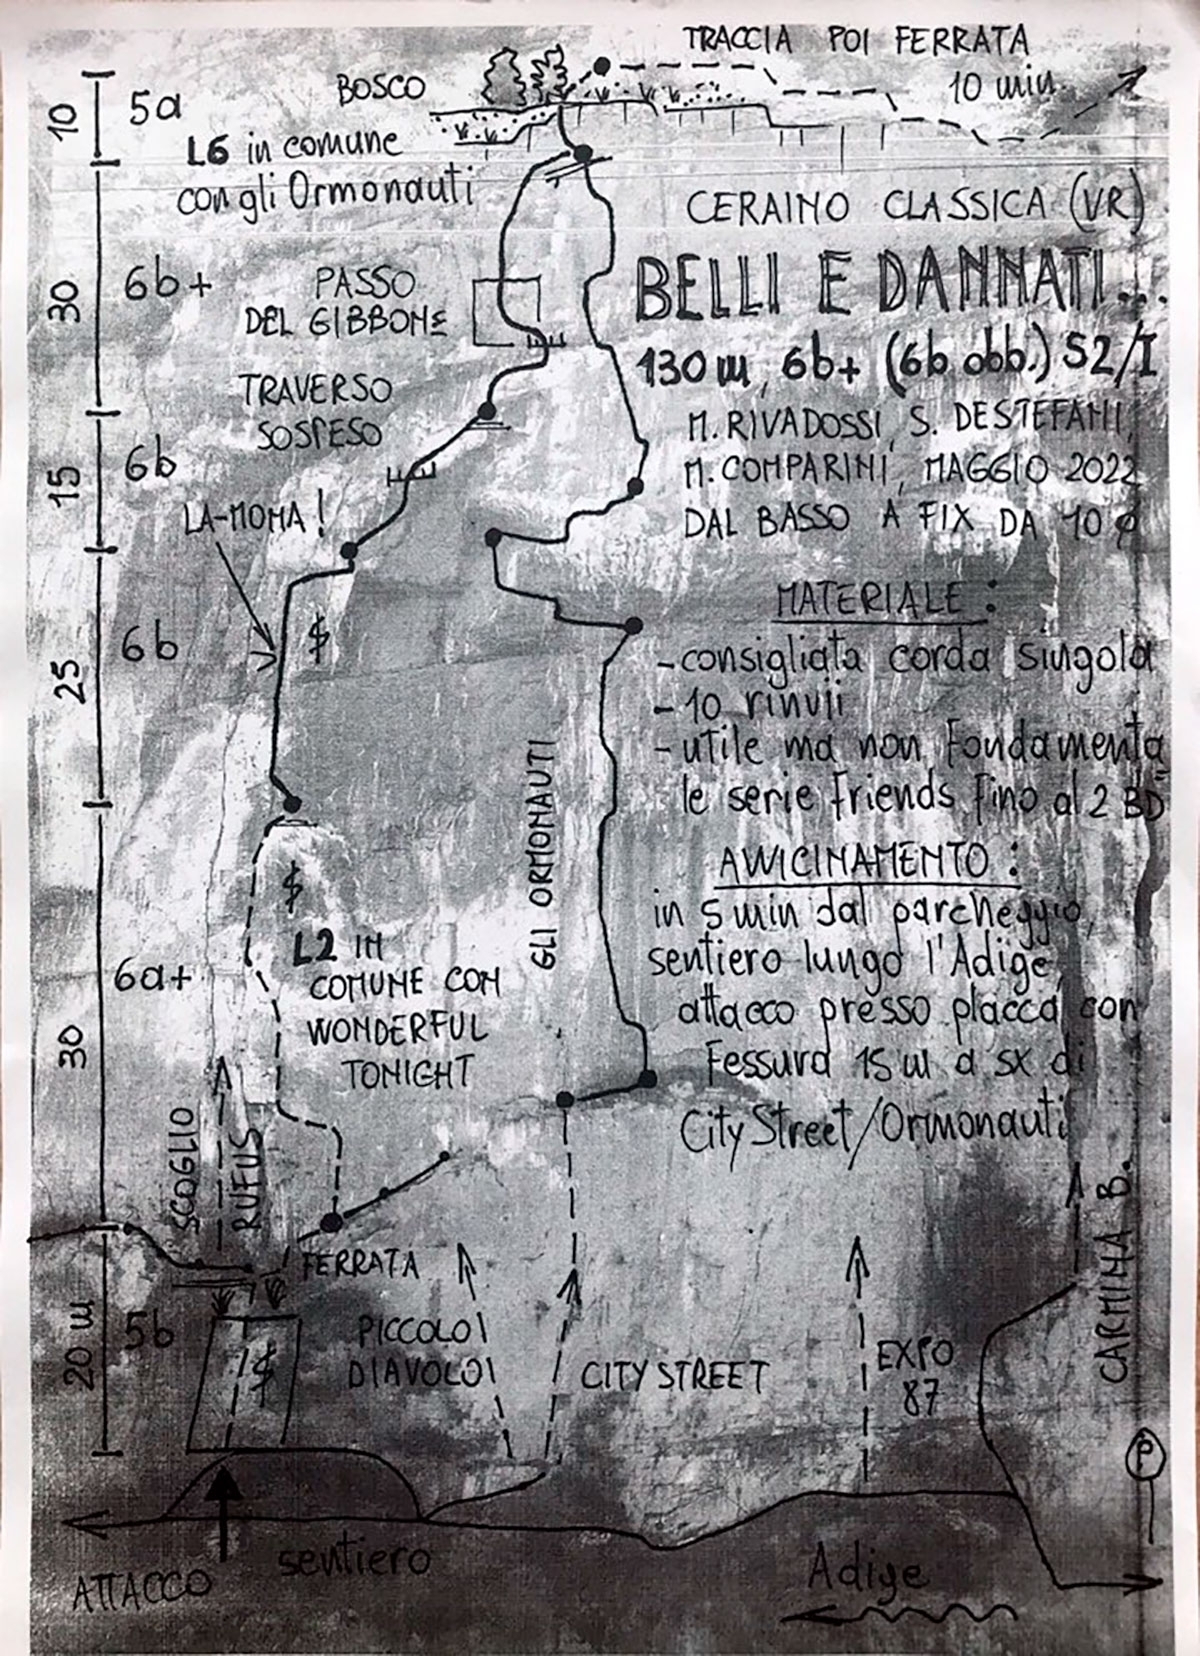 TRACCIA POI FERRATA
10 min.
BOSCO
10
5a
L6 in comune
con gli Ormonauti
CERAINO CLASSICA (VR)
BELLI E DANNATI...
130 m, 6b+ (6b obb.) S2/I
M. RIVADOSSI, S. DESTEFANI,
M. COMPARINI, MAGGIO 2022
DAL BASSO A FIX DA 10 ø
30
6b+
PASSO
DEL GIBBONE
TRAVERSO
SOSPESO
15
6b
LA-MOMA!
25
6b
$
MATERIALE:
- consigliata corda singola
- 10 rinvii
- utile ma non fondamenta
le serie friends fino al 2 BD"
AVVICINAMENTO:
in 5 min dal parcheggio,
sentiero lungo l'Adige,
attacco presso placca con
fessura 15 m a sx di
City Street/Ormonauti
GLI ORMONAUTI
$
L2 IN
COMUNE CON
WONDERFUL
TONIGHT
6a+
30
SCOGLIO
RUFUS
FERRATA
20 m
5b
$
PICCOLO
DIAVOLO
CITY STREET
EXPO
87
CARMINA B.
P
ATTACCO
sentiero
Adige